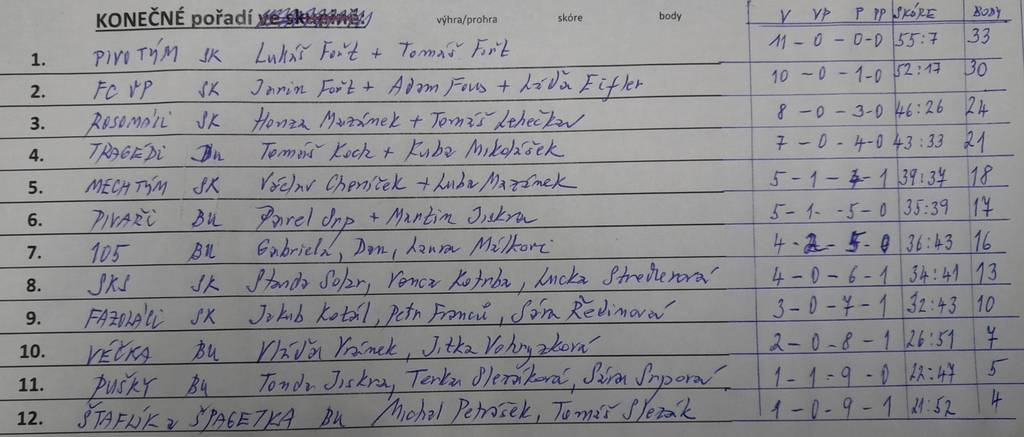 KONEČNÉ pořadí výhra/prohra skóre body V VP P PP SKÓRE BODY
1. PIVO TÝM SK Lukáš Fořt + Tomáš Fořt 11 - 0 - 0 - 0 55:7 33
2. FC VP SK Fořt + Adam + Láďa Eifler 10 - 0 - 1 - 0 52:17 30
3. ROSOMÁCI SK Honza Mazánek + Tomáš 8 - 0 - 3 - 0 46:26 24
4. TRAGÉDI BU Tomáš Koch + Kuba Mikolášek 7 - 0 - 4 - 0 43:33 21
5. MECHTÝM SK Václav Cheníček + Luba Mazánek 5 - 1 - - 1 39:37 18
6. PIVAŘI BU Pavel Srp + Martin Jiskra 5 - 1 - - 5 - 0 35:39 17
7. 105 BU Gabriela, Dan, Laura Málkovi 4 - 2 - 5 - 0 36:43 16
8. SKS SK Standa Solar, Venca Kotrba, Lucka 4 - 0 - 6 - 1 34:41 13
9. FAZOLÁCI SK Jakub Kotál, Petr Franců, Sára Ředinová 3 - 0 - 7 - 1 32:43 10
10. VÉČKA BU Vláďa Vránek, Jitka 2 - 0 - 8 - 1 26:51 7
11. PUŠKY BU Tonda Jiskra, Terka Slezáková, Sára Srpová 1 - 1 - 9 - 0 22:47 5
12. ŠTAFLÍK a ŠPAGETKA BU Michal Petrášek, Tomáš Slezák 1 - 0 - 9 - 1 21:52 4